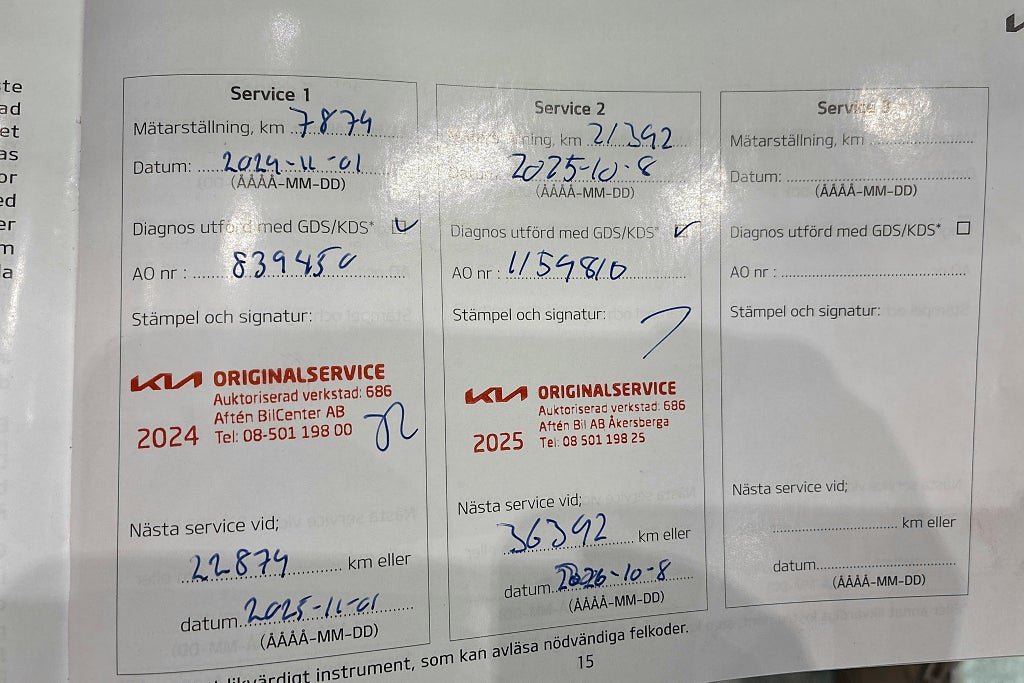 ste
ad
et
as
or
ed
er
m
da
Service 1
Mätarställning, km 7874
Datum: 2024-11-01
(ÅÅÅÅ-MM-DD)
Diagnos utförd med GDS/KDS*
AO nr : 839450
Stämpel och signatur:
KIA ORIGINALSERVICE
Auktoriserad verkstad: 686
Aftén BilCenter AB
2024 Tel: 08-501 198 00
Nästa service vid;
22874 km eller
datum 2025-11-01
(ÅÅÅÅ-MM-DD)
Service 2
Mätarställning, km 21392
Datum: 2025-10-8
(ÅÅÅÅ-MM-DD)
Diagnos utförd med GDS/KDS*
AO nr : 1159810
Stämpel och signatur:
KIA ORIGINALSERVICE
Auktoriserad verkstad: 686
Aftén Bil AB Åkersberga
2025 Tel: 08 501 198 25
Nästa service vid;
36392 km eller
datum 2026-10-8
(ÅÅÅÅ-MM-DD)
Service 3
Mätarställning, km
Datum:
(ÅÅÅÅ-MM-DD)
Diagnos utförd med GDS/KDS*
AO nr :
Stämpel och signatur:
Nästa service vid;
km eller
datum
(ÅÅÅÅ-MM-DD)
likvärdigt instrument, som kan avläsa nödvändiga felkoder.
15